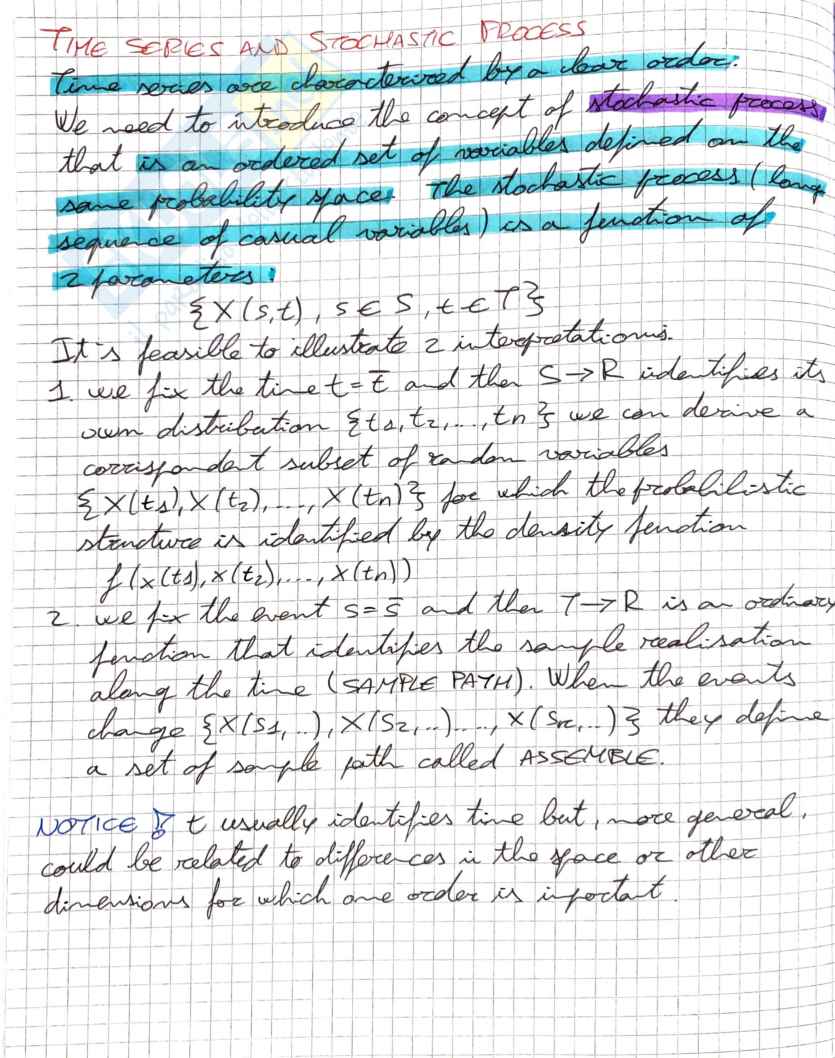 TIME SERIES AND STOCHASTIC PROCESS
Time series are characterized by a clear order.
We need to introduce the concept of stochastic process
that is an ordered set of variables defined on the
same probability space. The stochastic process (long
sequence of casual variables) is a function of
2 parameters:
{X(s,t), s ∈ S, t ∈ T}
It's feasible to illustrate 2 interpretations.
1. we fix the time t = t̅ and then S → R identifies its
own distribution {t1, t2, ..., tn} we can derive a
corrispondent subset of random variables
{X(t1), X(t2), ...., X(tn)} for which the probabilistic
structure is identified by the density function
f(x(t1), x(t2), ..., x(tn))
2. we fix the event s = s̅ and then T → R is an ordinary
function that identifies the sample realisation
along the time (SAMPLE PATH). When the events
change {X(S1, ..), X(S2, ..) ...., X(Sn, ..)} they define
a set of sample path called ASSEMBLE.
NOTICE ! t usually identifies time but, more general,
could be related to differences in the space or other
dimensions for which one order is important.